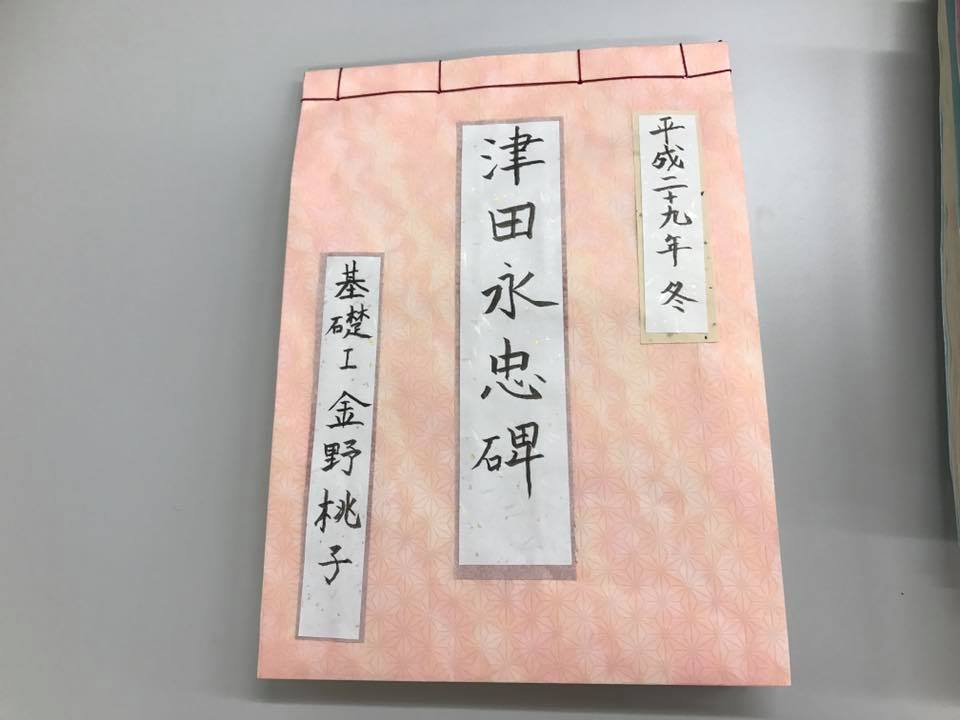 平成二十九年 冬
津田永忠碑
基礎工 金野桃子